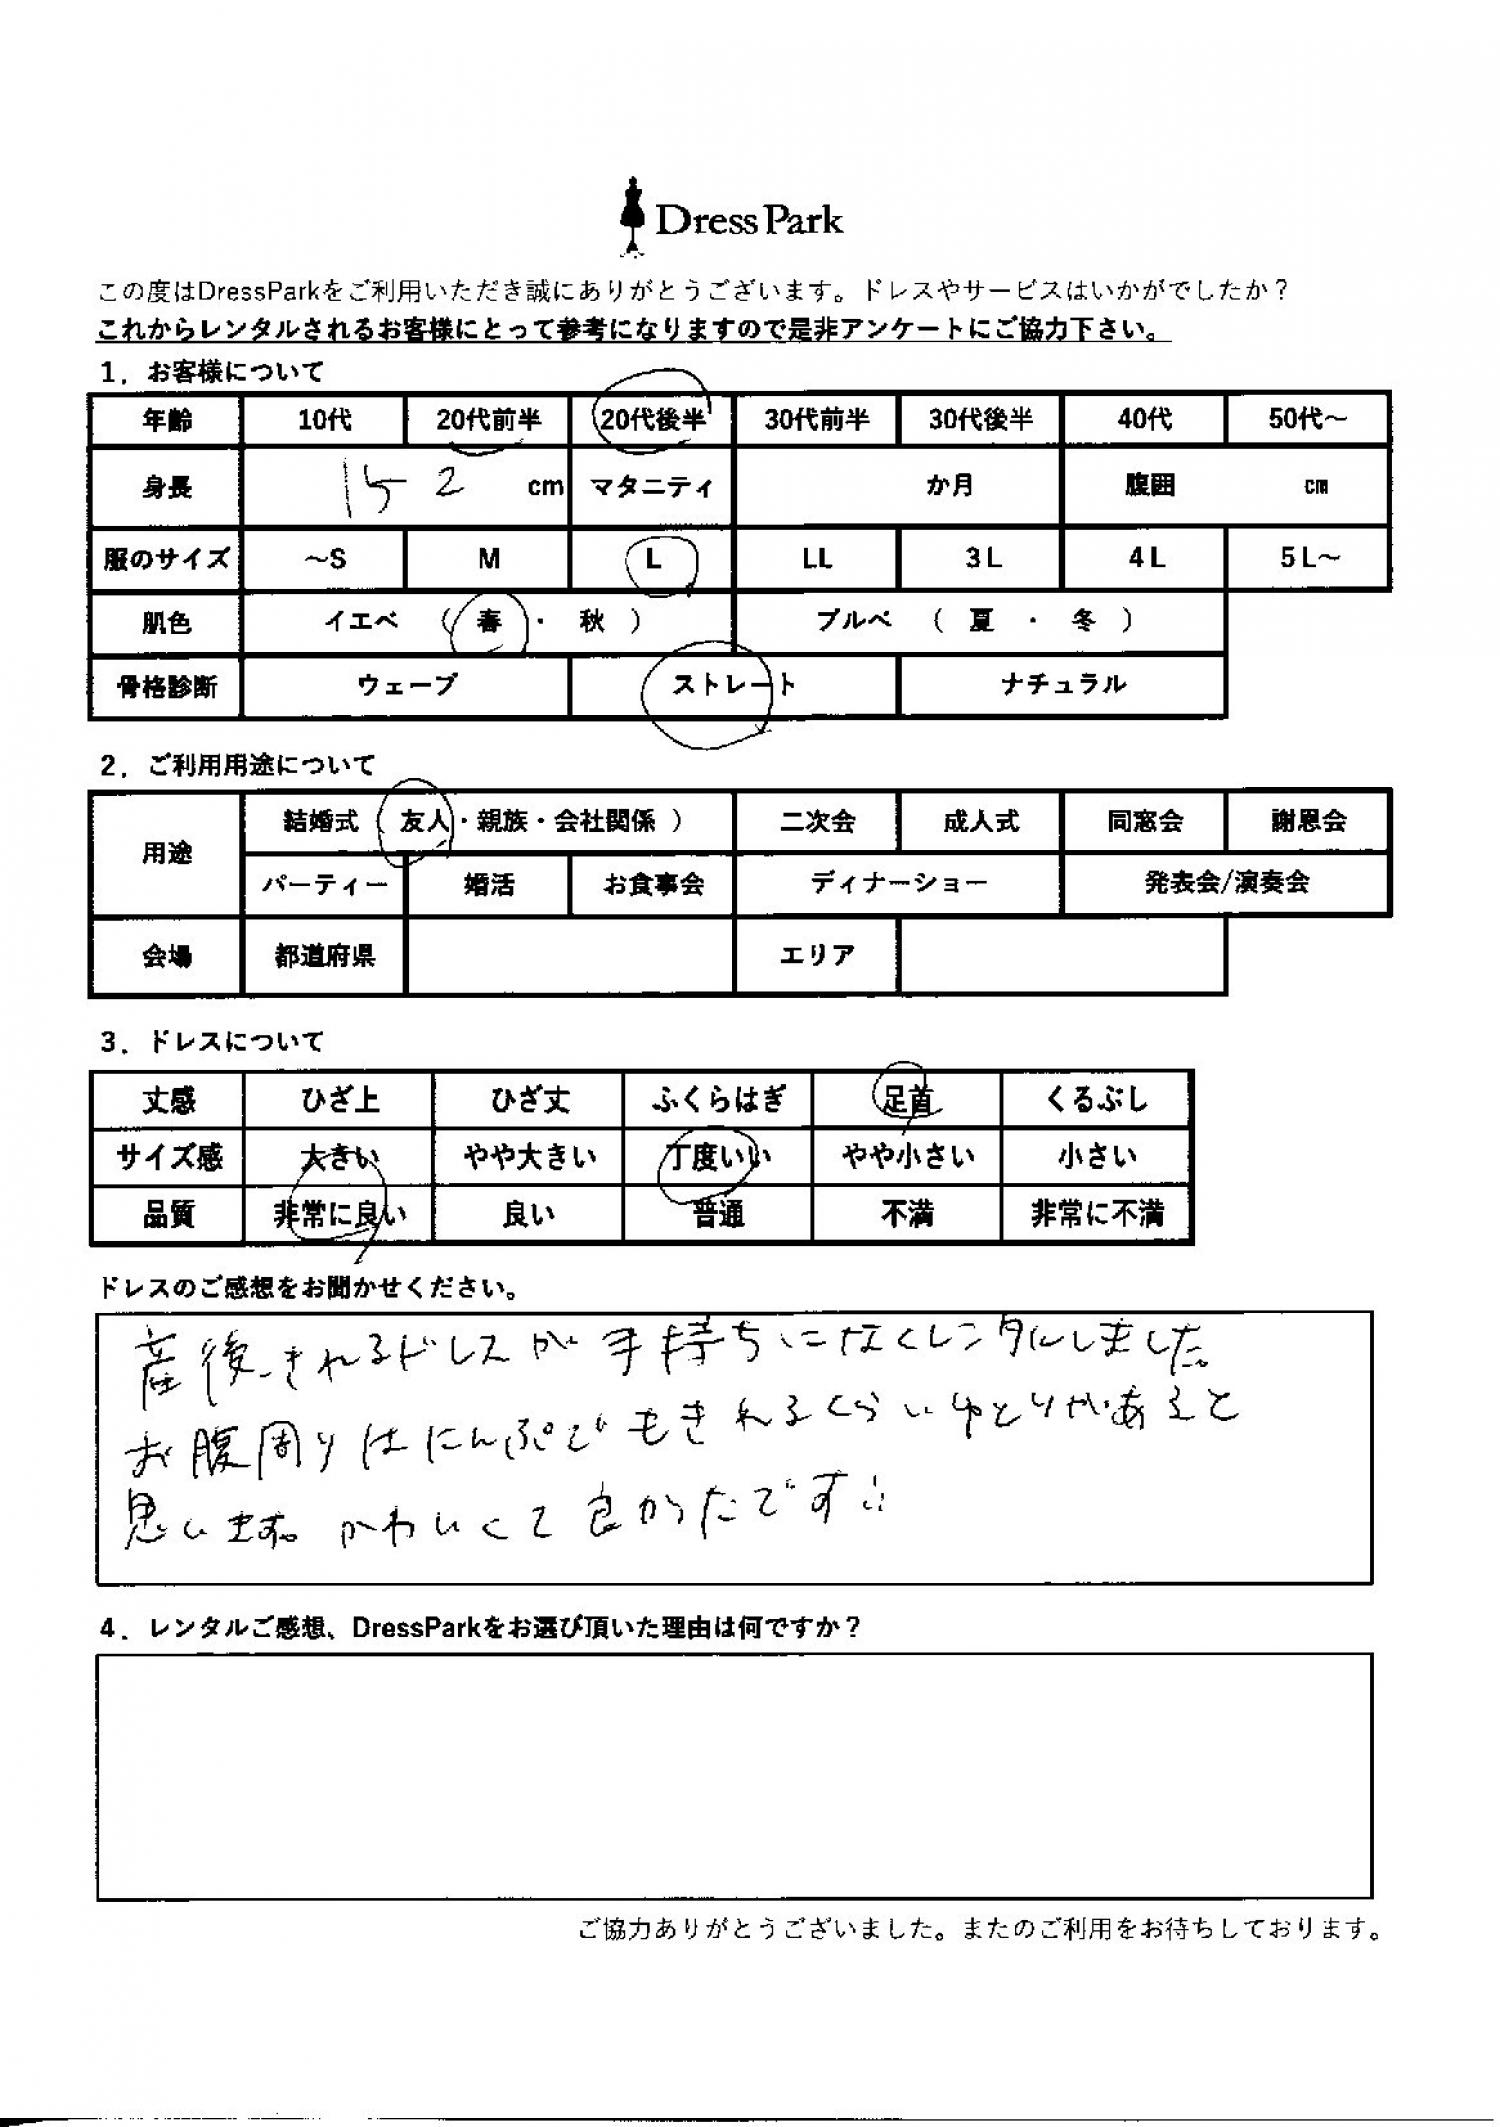 Dress Park
この度はDressParkをご利用いただき誠にありがとうございます。ドレスやサービスはいかがでしたか？
これからレンタルされるお客様にとって参考になりますので是非アンケートにご協力下さい。
1．お客様について
年齢 10代 20代前半 20代後半 30代前半 30代後半 40代 50代～
身長 152 cm マタニティ か月 腹囲 cm
服のサイズ ～S M L LL 3L 4L 5L～
肌色 イエベ （ 春 ・ 秋 ） ブルベ （ 夏 ・ 冬 ）
骨格診断 ウェーブ ストレート ナチュラル
2．ご利用用途について
用途 結婚式（ 友人・親族・会社関係 ） 二次会 成人式 同窓会 謝恩会
パーティー 婚活 お食事会 ディナーショー 発表会/演奏会
会場 都道府県 エリア
3．ドレスについて
丈感 ひざ上 ひざ丈 ふくらはぎ 足首 くるぶし
サイズ感 大きい やや大きい 丁度いい やや小さい 小さい
品質 非常に良い 良い 普通 不満 非常に不満
ドレスのご感想をお聞かせください。
産後きれるドレスが手持ちになくレンタルしました。
お腹周りはにんぷでもきれるくらいゆとりがあると
思います。かわいくて良かったです
4．レンタルご感想、DressParkをお選び頂いた理由は何ですか？
ご協力ありがとうございました。またのご利用をお待ちしております。